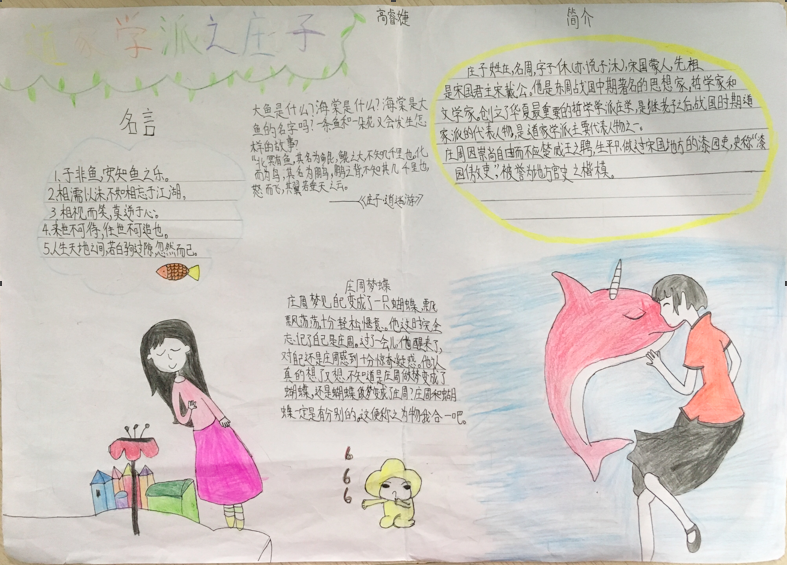 道家学派之庄子
高睿婕
简介
庄子姓庄,名周,字子休(亦说子沐),宋国蒙人,先祖
是宋国君主宋戴公。他是东周战国中期著名的思想家,哲学家和
文学家。创立了华夏最重要的哲学学派庄学,是继老子之后,战国时期道
家派的代表人物,是道家学派主要代表人物之一。
庄周因崇尚自由而不应楚威王之聘,生平只做过宋国地方的漆园吏,史称“漆
园傲吏”,被誉为地方官吏之楷模。
名言
1.子非鱼,安知鱼之乐。
2.相濡以沫不如相忘于江湖。
3.相视而笑,莫逆于心。
4.来世不可待,往世不可追也。
5.人生天地之间,若白驹过隙,忽然而已。
大鱼是什么?海棠是什么?海棠是大
鱼的名字吗?一条鱼和一朵花又会发生怎
样的故事?
“北冥有鱼,其名为鲲,鲲之大,不知几千里也,化
而为鸟,其名为鹏,鹏之背,不知其几千里也,
怒而飞,其翼若垂天之云。
——《庄子·逍遥游》
庄周梦蝶
庄周梦见自己变成了一只蝴蝶,飘飘
荡荡十分轻松惬意。他这时完全
忘记了自己是庄周。过了一会儿,他醒来了,
对自己还是庄周感到十分惊奇疑惑。他认
真的想了又想,不知道是庄周做梦变成了
蝴蝶,还是蝴蝶做梦变成了庄周?庄周和蝴
蝶一定是有分别的。这便称之为物我合一吧。
6
6
6